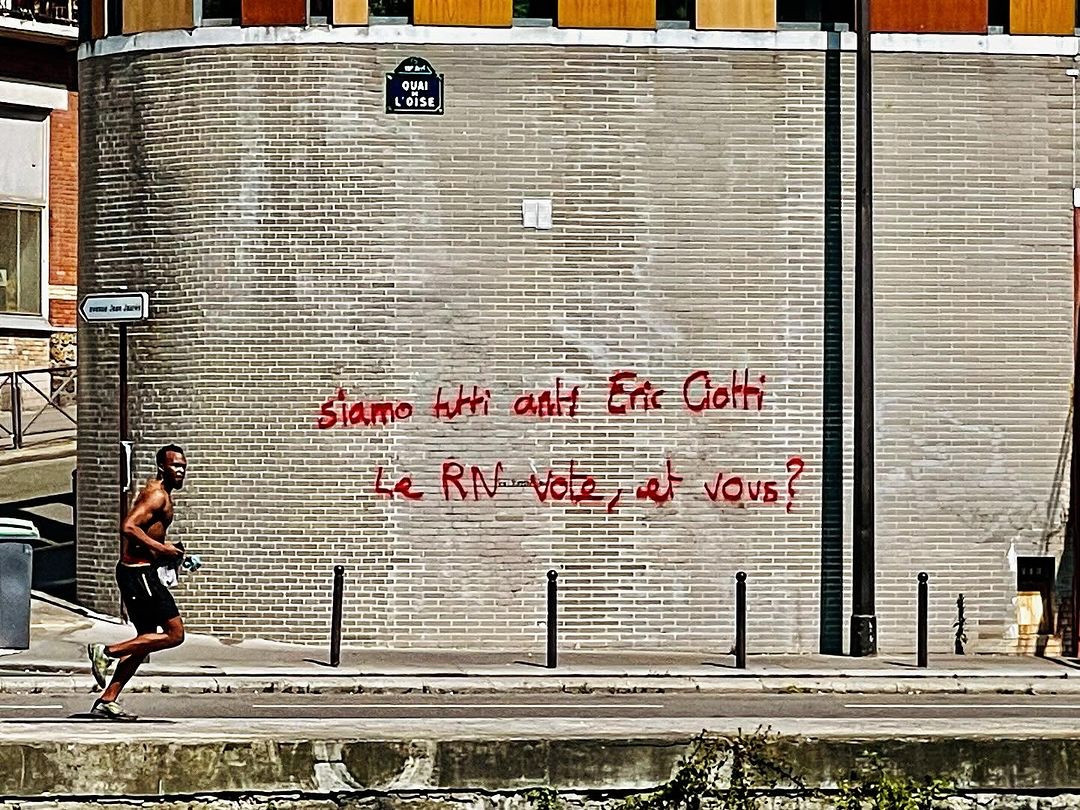 19e Arrt
QUAI
DE
L'OISE
avenue Jean Jaurès
siamo tutti anti Eric Ciotti
Le RN vote, et vous?